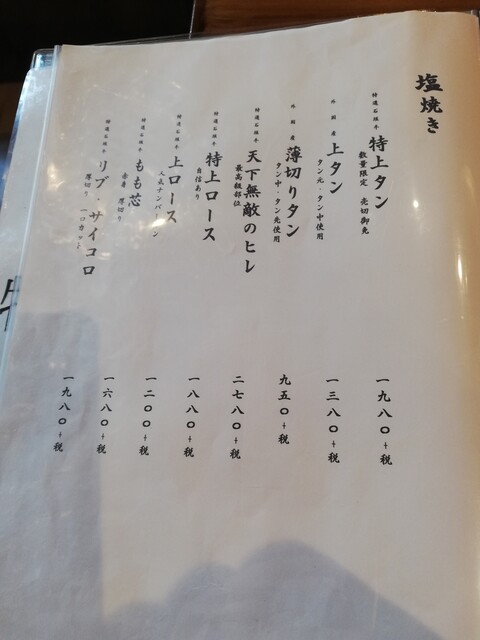 塩焼き
特選石垣牛
特上タン
数量限定 売切御免
一九八〇+税
外国産
上タン
タン元・タン中使用
一三八〇+税
外国産
薄切りタン
タン中・タン先使用
九五〇+税
特選石垣牛
天下無敵のヒレ
最高級部位
二七八〇+税
特選石垣牛
特上ロース
自信あり
一八八〇+税
特選石垣牛
上ロース
人気ナンバーワン
一二〇〇+税
特選石垣牛
もも芯
赤身 厚切り
一六八〇+税
特選石垣牛
リブ・サイコロ
厚切り 一口カット
一九八〇+税